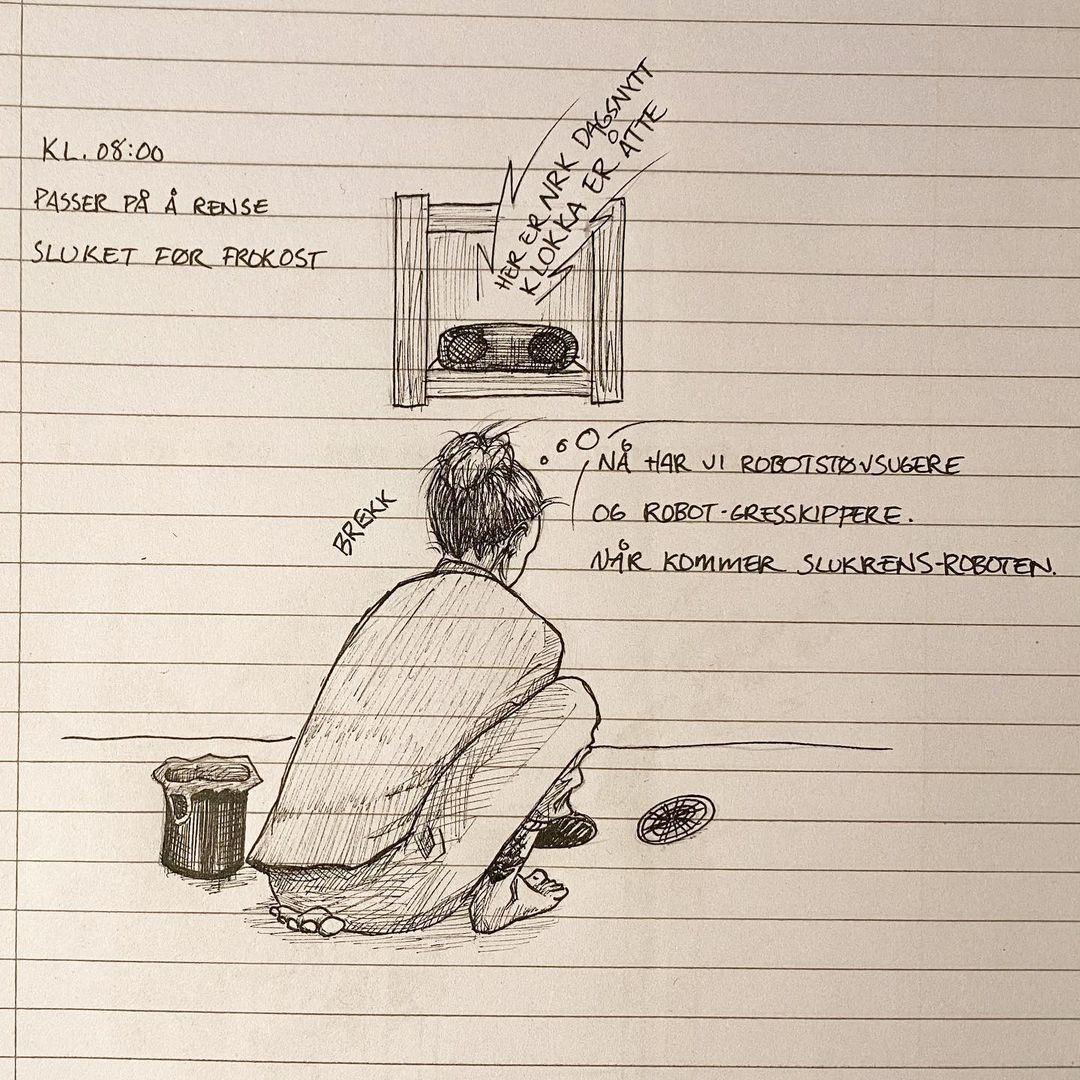 KL. 08:00
PASSER PÅ Å RENSE
SLUKET FØR FROKOST
HER ER NRK DAGSNYTT
KLOKKA ER ÅTTE
BREKK
NÅ HAR VI ROBOTSTØVSUGERE
OG ROBOT-GRESSKIPPERE.
NÅR KOMMER SLUKRENS-ROBOTEN.